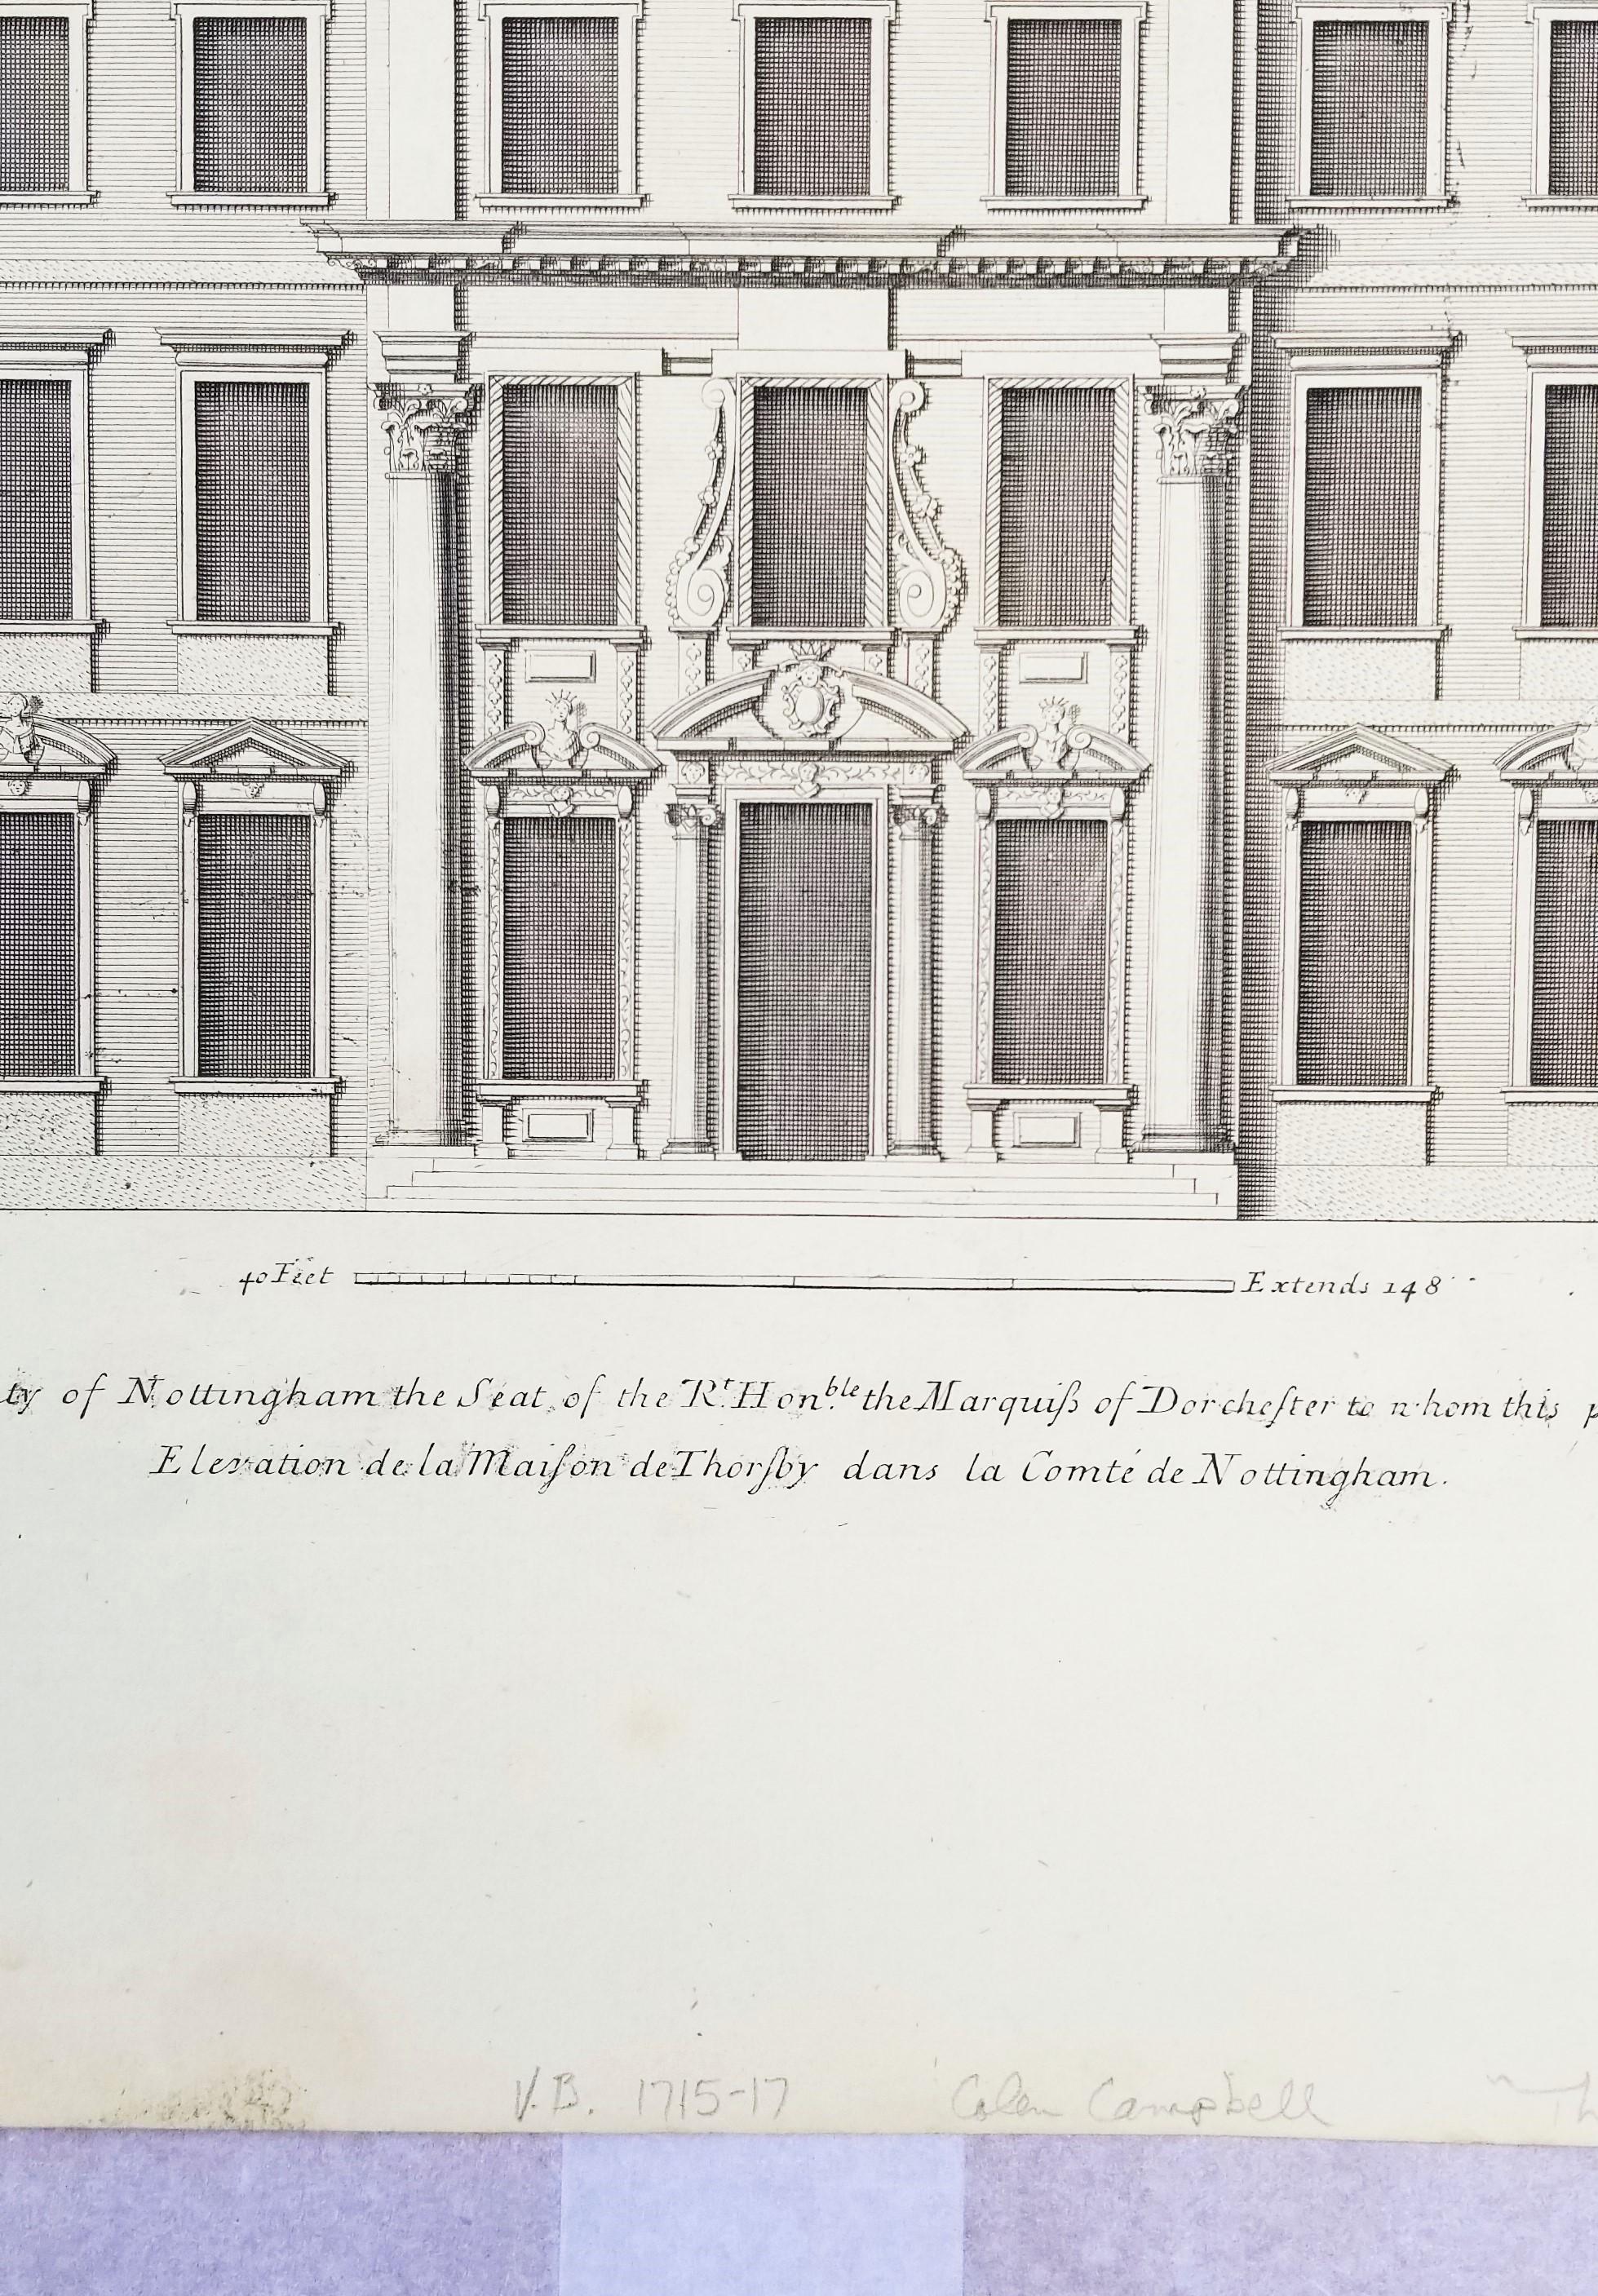 40 Feet Extends 148
ty of Nottingham the Seat of the R.t Hon.ble the Marquiſs of Dorcheſter to whom this p
Elevation de la Maiſon de Thorſby dans la Comté de Nottingham.
V.B. 1715-17 Colen Campbell "Th